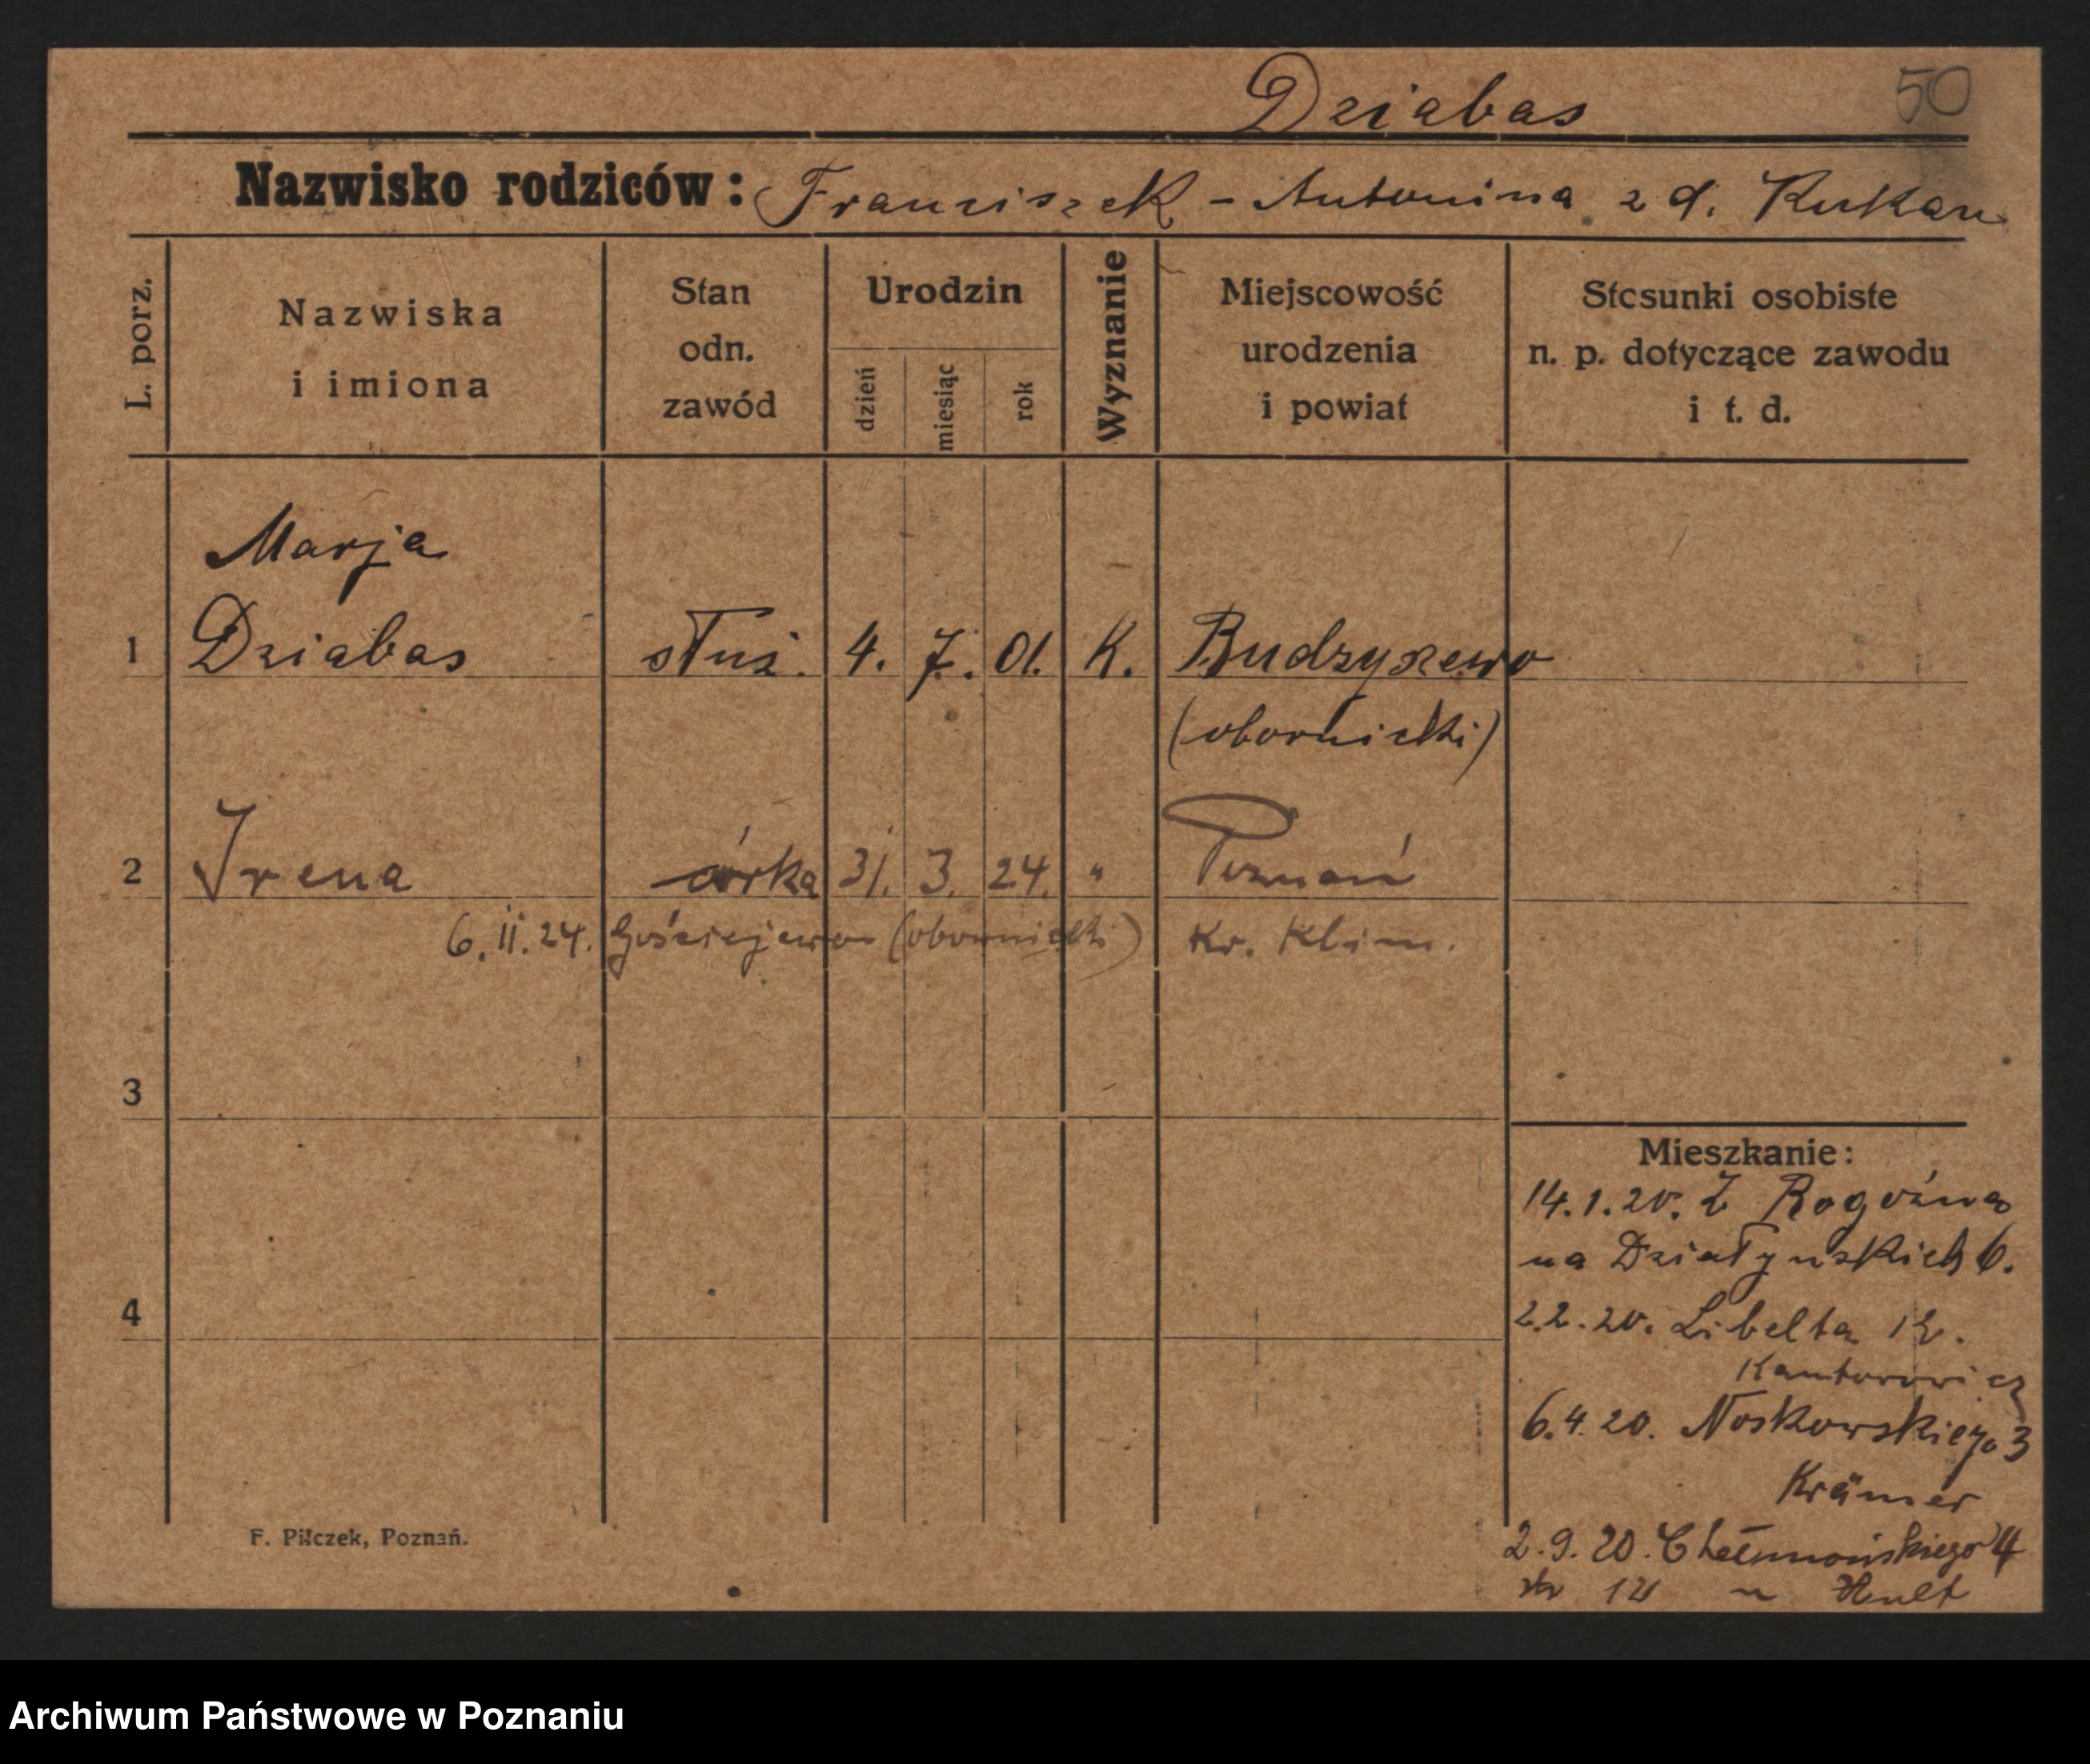 Dziabas 50
Nazwisko rodziców: Franciszek - Antonina z d. Kukan
L. porz.
Nazwiska
i imiona
Stan
odn.
zawód
Urodzin
dzień
miesiąc
rok
Wyznanie
Miejscowość
urodzenia
i powiat
Stosunki osobiste
n. p. dotyczące zawodu
i t. d.
Marja
1 Dziabas służ. 4. 7. 01. K. Budzyszewo
(obornicki)
2 Irena córka 31. 3. 24. " Poznań
6.11.24. Gościejewo (obornicki) Kr. Klin.
3
4
Mieszkanie:
14.1.20. Z Rogoźna
na Działyńskich 6.
2.2.20. Libelta 12.
Kantorowicz
6.4.20. Noskowskiego 3
Krämer
2.9.20. Chełmońskiego 4
F. Pilczek, Poznań.
Archiwum Państwowe w Poznaniu